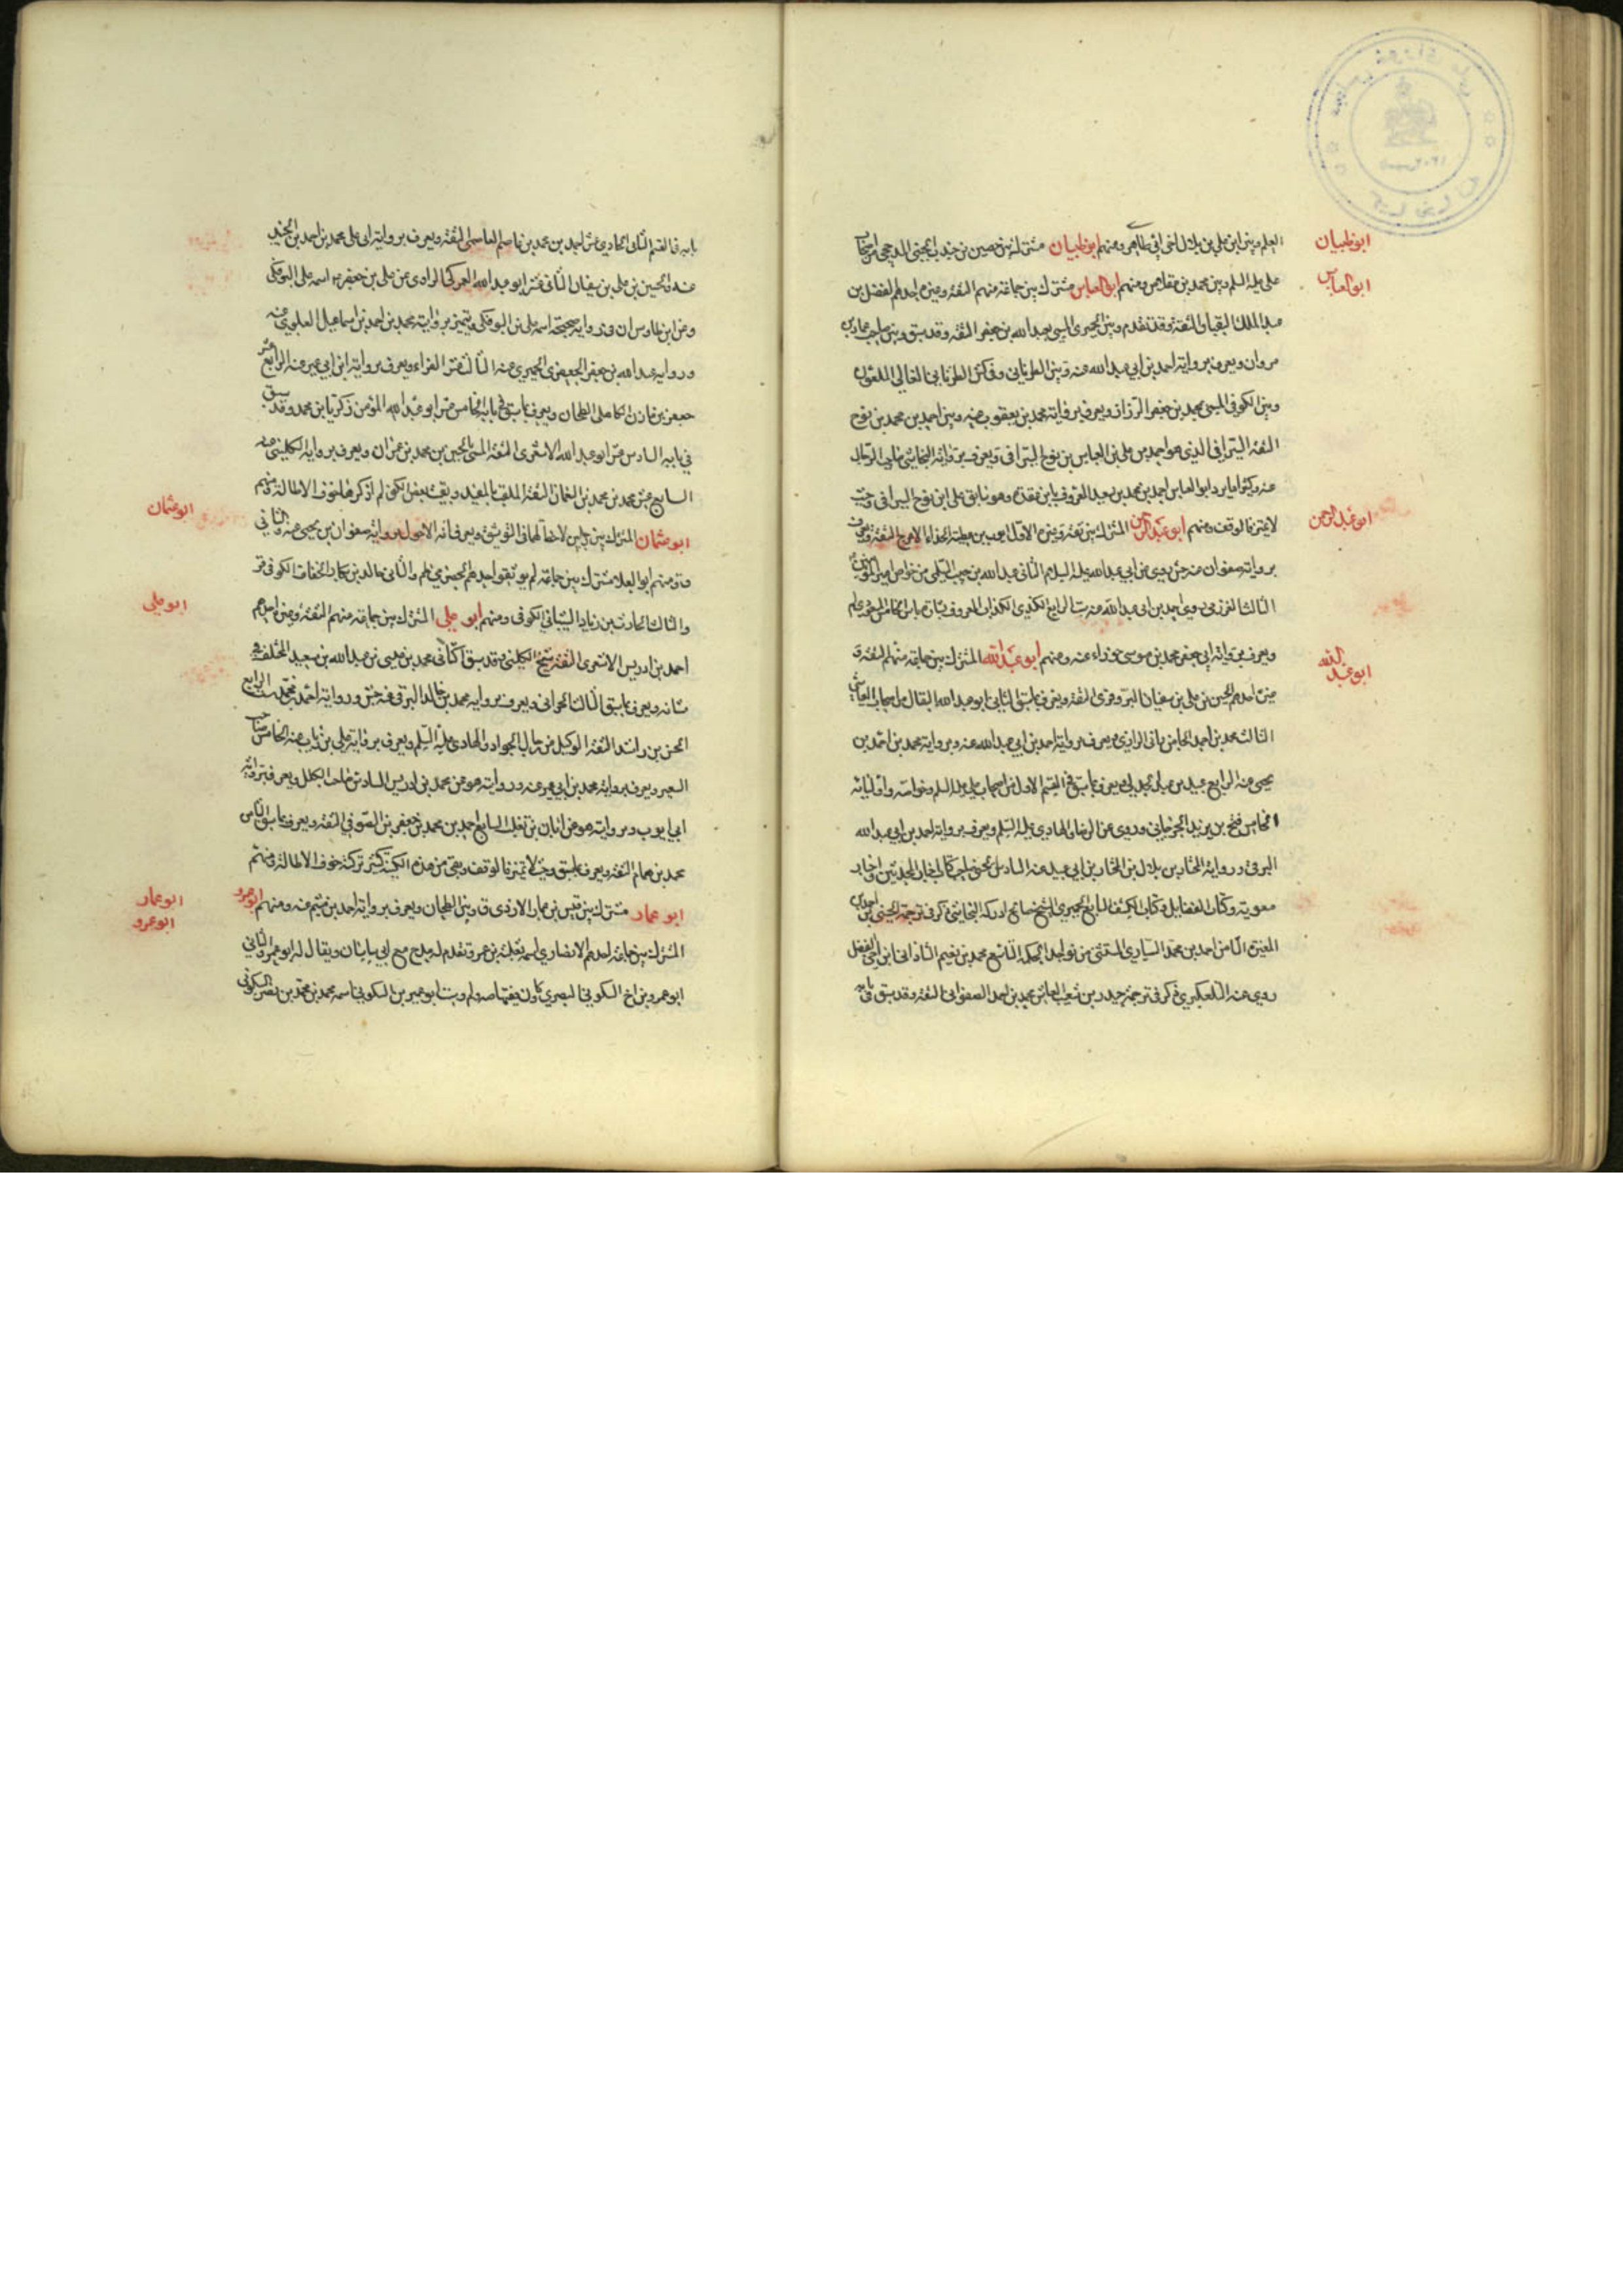 ابو ظبيان
ابو العباس
ابو عبد الرحمن
ابو عبد الله
بن علي بن بلال اخي ابي طاهر ومنهم ابو ظبيان مشترك بين حصين بن جندب الجنبي
علي عليه السلم وبين محمد بن مقلاص ومنهم ابو العباس مشترك بين جماعة منهم الثقة وغيره احدهم الفضل بن
عبد الملك البقباق الثقة وقد تقدم وبين الحميري المسمى بعبد الله بن جعفر الثقة وقد سبق وبين صاحب عمار بن
مروان ويعرف برواية احمد بن ابي عبد الله عنه وبين الطرناني وفي كش الطرناني الغالي الملعون
وبين الكوفي المسمى محمد بن جعفر الرزاز ويعرف برواية محمد بن يعقوب عنه وبين احمد بن محمد بن نوح
الثقة السيرافي الذي هو احمد بن علي بن العباس بن نوح السيرافي ويعرف برواية النجاشي صاحب الرجال
عنه احمد بن محمد بن سعيد المعروف بابن عقدة وهو سابق على ابن نوح السيرافي وحيث
لا تميز فالوقف ومنهم ابو عبد الرحمن المشترك بين ثقة وغيره الاول ايوب بن عطية الحذاء الاعرج الثقة ويعرف
برواية صفوان عنه روى عن ابي عبد الله عليه السلام الثاني عبد الله بن حبيب السلمي من خواص امير المؤمنين
الثالث العرزمي روى احمد بن ابي عبد الله عنه ست الرابع الكندي
ويعرف برواية ابي جعفر محمد بن موسى خوراء عنه ومنهم ابو عبد الله المشترك بين جماعة منهم الثقة و
غيره احدهم الحسين بن علي بن سفيان البزوفري الثقة ويعرف بما سبق الثاني ابو عبد الله البقال
الثالث محمد بن احمد الجاموراني الرازي ويعرف برواية احمد بن ابي عبد الله عنه وبرواية محمد بن احمد بن
يحيى عنه الرابع عبيد بن عبد الجدلي ويعرف بما سبق في القسم الاول من اصحاب علي عليه السلم وخواصه واوليائه
الخامس فتح بن يزيد الجرجاني وروى عن الرضا والهادي عليه السلم ويعرف برواية احمد بن ابي عبد الله
البرقي ورواية المختار بن بلال بن المختار بن ابي عبيد عنه السادس صاحب كتاب اخبار المحدثين واخبار
معوية وكتاب الفضايل وكتاب الكشف السابع الحميري الشيخ صالح ادركه النجاشي ذكر في ترجمة الحسين بن احمد بن
المغيرة الثامن احمد بن محمد السياري المستثنى من نوادر الحكمة التاسع محمد بن نعيم الشاذاني ابن اخي الفضل
روى عنه التلعكبري ذكر في ترجمة حيدر بن شعيب العاشر محمد بن احمد الصفواني الثقة وقد سبق في بابه
ابو عثمان
ابو علي
ابو عمار
ابو عمرو
بابه في القسم الثاني الحادي عشر احمد بن محمد بن عاصم العاصمي الثقة ويعرف برواية ابي علي محمد بن احمد بن الجنيد
عنه والحسين بن علي بن سفيان الثاني عشر ابو عبد الله العمركي الراوي عن علي بن جعفر اسمه علي البوفكي
وعن ابن طاوس ان في رواية صحيحة اسمه علي بن البوفكي ويتميز برواية محمد بن احمد بن اسماعيل العلوي عنه
ورواية عبد الله بن جعفر الحميري عنه الثالث عشر الفراء ويعرف برواية ابن ابي عمير عنه الرابع عشر
جعفر بن مازن الكاهلي الطحان ويعرف بما سبق في بابه الخامس عشر ابو عبد الله المؤمن زكريا بن محمد وقد سبق
في بابه السادس عشر ابو عبد الله الاشعري الثقة المسمى بالحسين بن محمد بن عمران ويعرف برواية الكليني عنه
السابع عشر محمد بن محمد بن النعمان الثقة الملقب بالمفيد وبقيت بعض الكنى لم اذكرها لخوف الاطالة ومنهم
ابو عثمان المشترك بين رجلين لاحظ لهما في التوثيق ويعرف انه الاحول برواية صفوان بن يحيى عنه والثاني
ومنهم ابو العلا مشترك بين جماعة لم يوثقوا احدهم والثاني خالد بن بكار الخفاف الكوفي
والثالث الحارث بن زياد الشيباني الكوفي ومنهم ابو علي المشترك بين جماعة منهم الثقة وغيره احدهم
احمد بن ادريس الاشعري الثقة شيخ الكليني وقد سبق الثاني محمد بن عيسى بن عبد الله بن سعيد المختلف في
شانه ويعرف بما سبق الثالث الحراني ويعرف برواية محمد بن خالد البرقي عنه جش ورواية احمد بن محمد ست الرابع
الحسن بن راشد الثقة الوكيل من رجال الجواد والهادي عليه السلم ويعرف برواية علي بن زياد عنه الخامس صاحب
ويعرف برواية محمد بن ابي عمير عنه وروايته هو عن محمد بن ادريس السادس صاحب الكلل ويعرف برواية
ابي ايوب وبروايته هو عن ابان بن تغلب السابع احمد بن محمد بن جعفر بن الصولي الثقة ويعرف بما سبق الثامن
محمد بن همام الثقة ويعرف بما سبق وحيث لا تميز فالوقف وبقي من هذه الكنية كثير تركته خوف الاطالة ومنهم
ابو عمار مشترك بين قيس بن عمار الازدي وبين الطحان ويعرف برواية احمد بن ميثم عنه ومنهم ابو عمرو
المشترك بين جماعة احدهم الانصاري اسمه ثعلبة بن عمرو تقدم له مدح مع ابي ساسان ويقال له ابو عمرة والثاني
ابو عمرو بن اخ السكوني البصري اسمه محمد بن محمد بن نصر السكوني